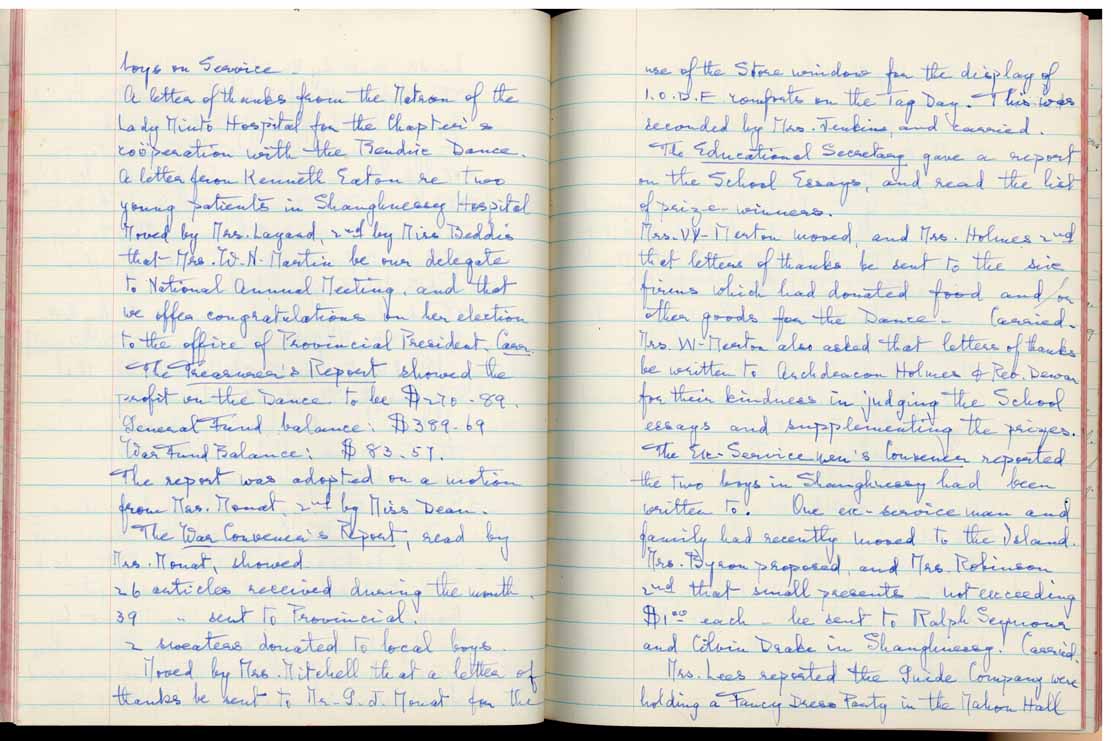 boys on Service -
A letter of thanks from the Matron of the
Lady Minto Hospital for the Chapter's
coöperation with the Bendric Dance.
A letter from Kenneth Eaton re two
young patients in Shaughnessy Hospital
Moved by Mrs. Layard, 2nd by Miss Beddis
that Mrs. W.N. Martin be our delegate
to National Annual Meeting, and that
we offer congratulations on her election
to the office of Provincial President. Carr.
The Treasurer's Report showed the
profit on the Dance to be $270-89.
General Fund balance: $389-69
War Fund Balance: $83.57.
The report was adopted on a motion
from Mrs. Mouat, 2nd by Miss Dean.
The War Convener's Report, read by
Mrs. Mouat, showed
26 articles received during the month.
39 " sent to Provincial.
2 sweaters donated to local boys.
Moved by Mrs. Mitchell that a letter of
thanks be sent to Mr. G.J. Mouat for the
use of the Store window for the display of
I.O.D.E comforts on the Tag Day. This was
seconded by Mrs. Jenkins, and carried.
The Educational Secretary gave a report
on the School Essays, and read the list
of prize-winners.
Mrs. W-Merton moved, and Mrs. Holmes 2nd
that letters of thanks be sent to the six
firms which had donated food and/or
other goods for the Dance - Carried.
Mrs. W-Merton also asked that letters of thanks
be written to Archdeacon Holmes & Rev. Dewar
for their kindness in judging the School
essays and supplementing the prizes.
The Ex-Service men's Convener reported
the two boys in Shaughnessy had been
written to. One ex-service man and
family had recently moved to the Island.
Mrs. Byron proposed, and Mrs. Robinson
2nd that small presents - not exceeding
$1.00 each - be sent to Ralph Seymour
and Drake in Shaughnessy. Carried.
Mrs. Lees reported the Guide Company were
holding a Fancy Dress Party in the Mahon Hall